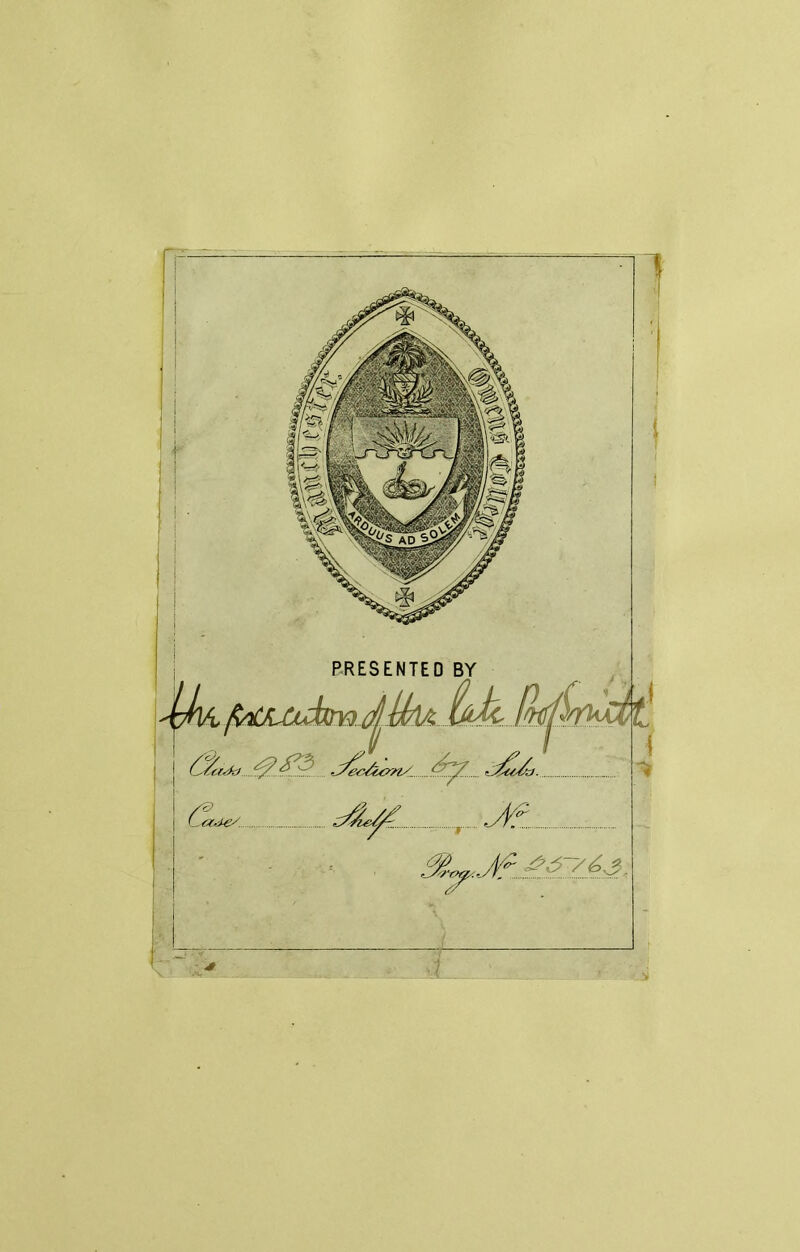 Owens College
Manchester.
ARDUUS AD SOLEM
PRESENTED BY
The executors of the late Prof Smith
Class 983 Section 67 Sub.
Case Shelf No.
Prog. No. 25763.